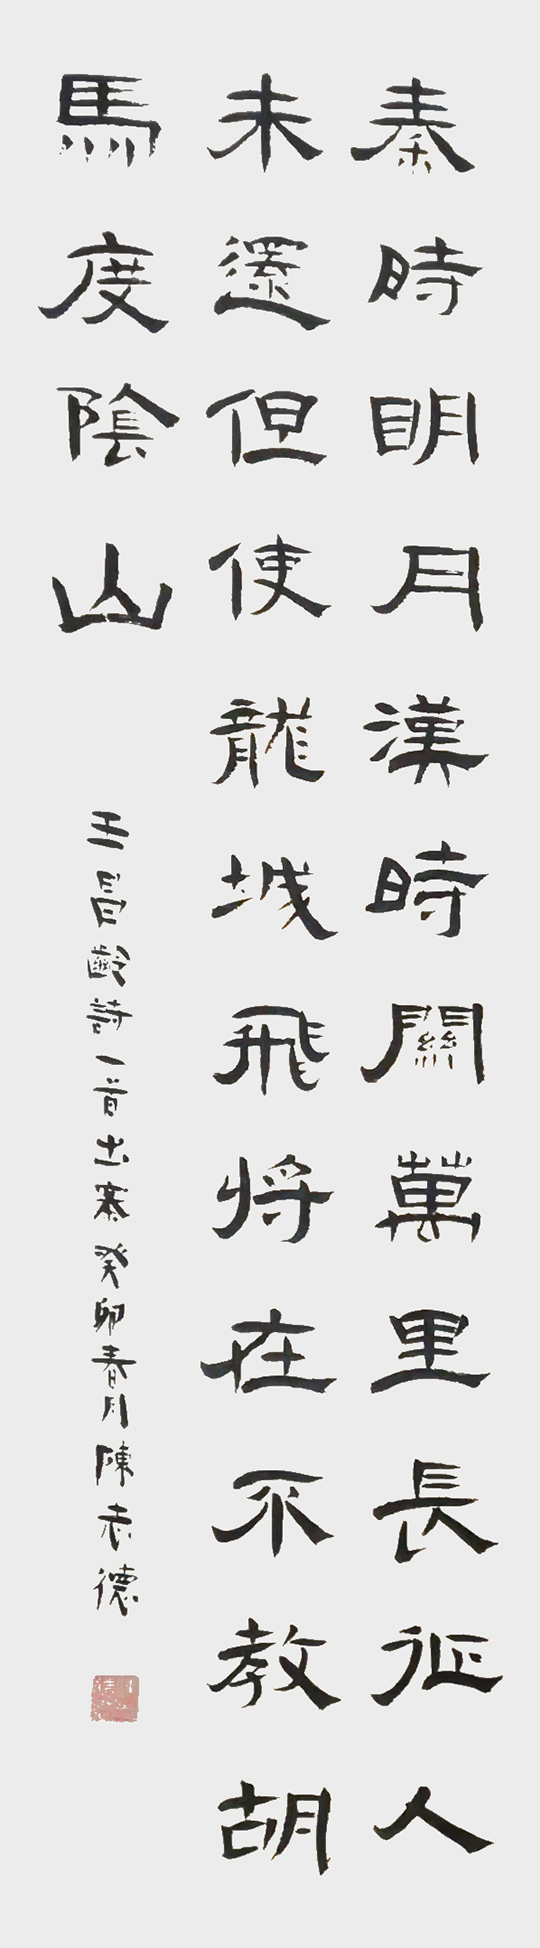 秦時明月漢時關萬里長征人
未還但使龍城飛将在不教胡
馬度陰山
王昌齡詩一首出塞癸卯春月陳志德